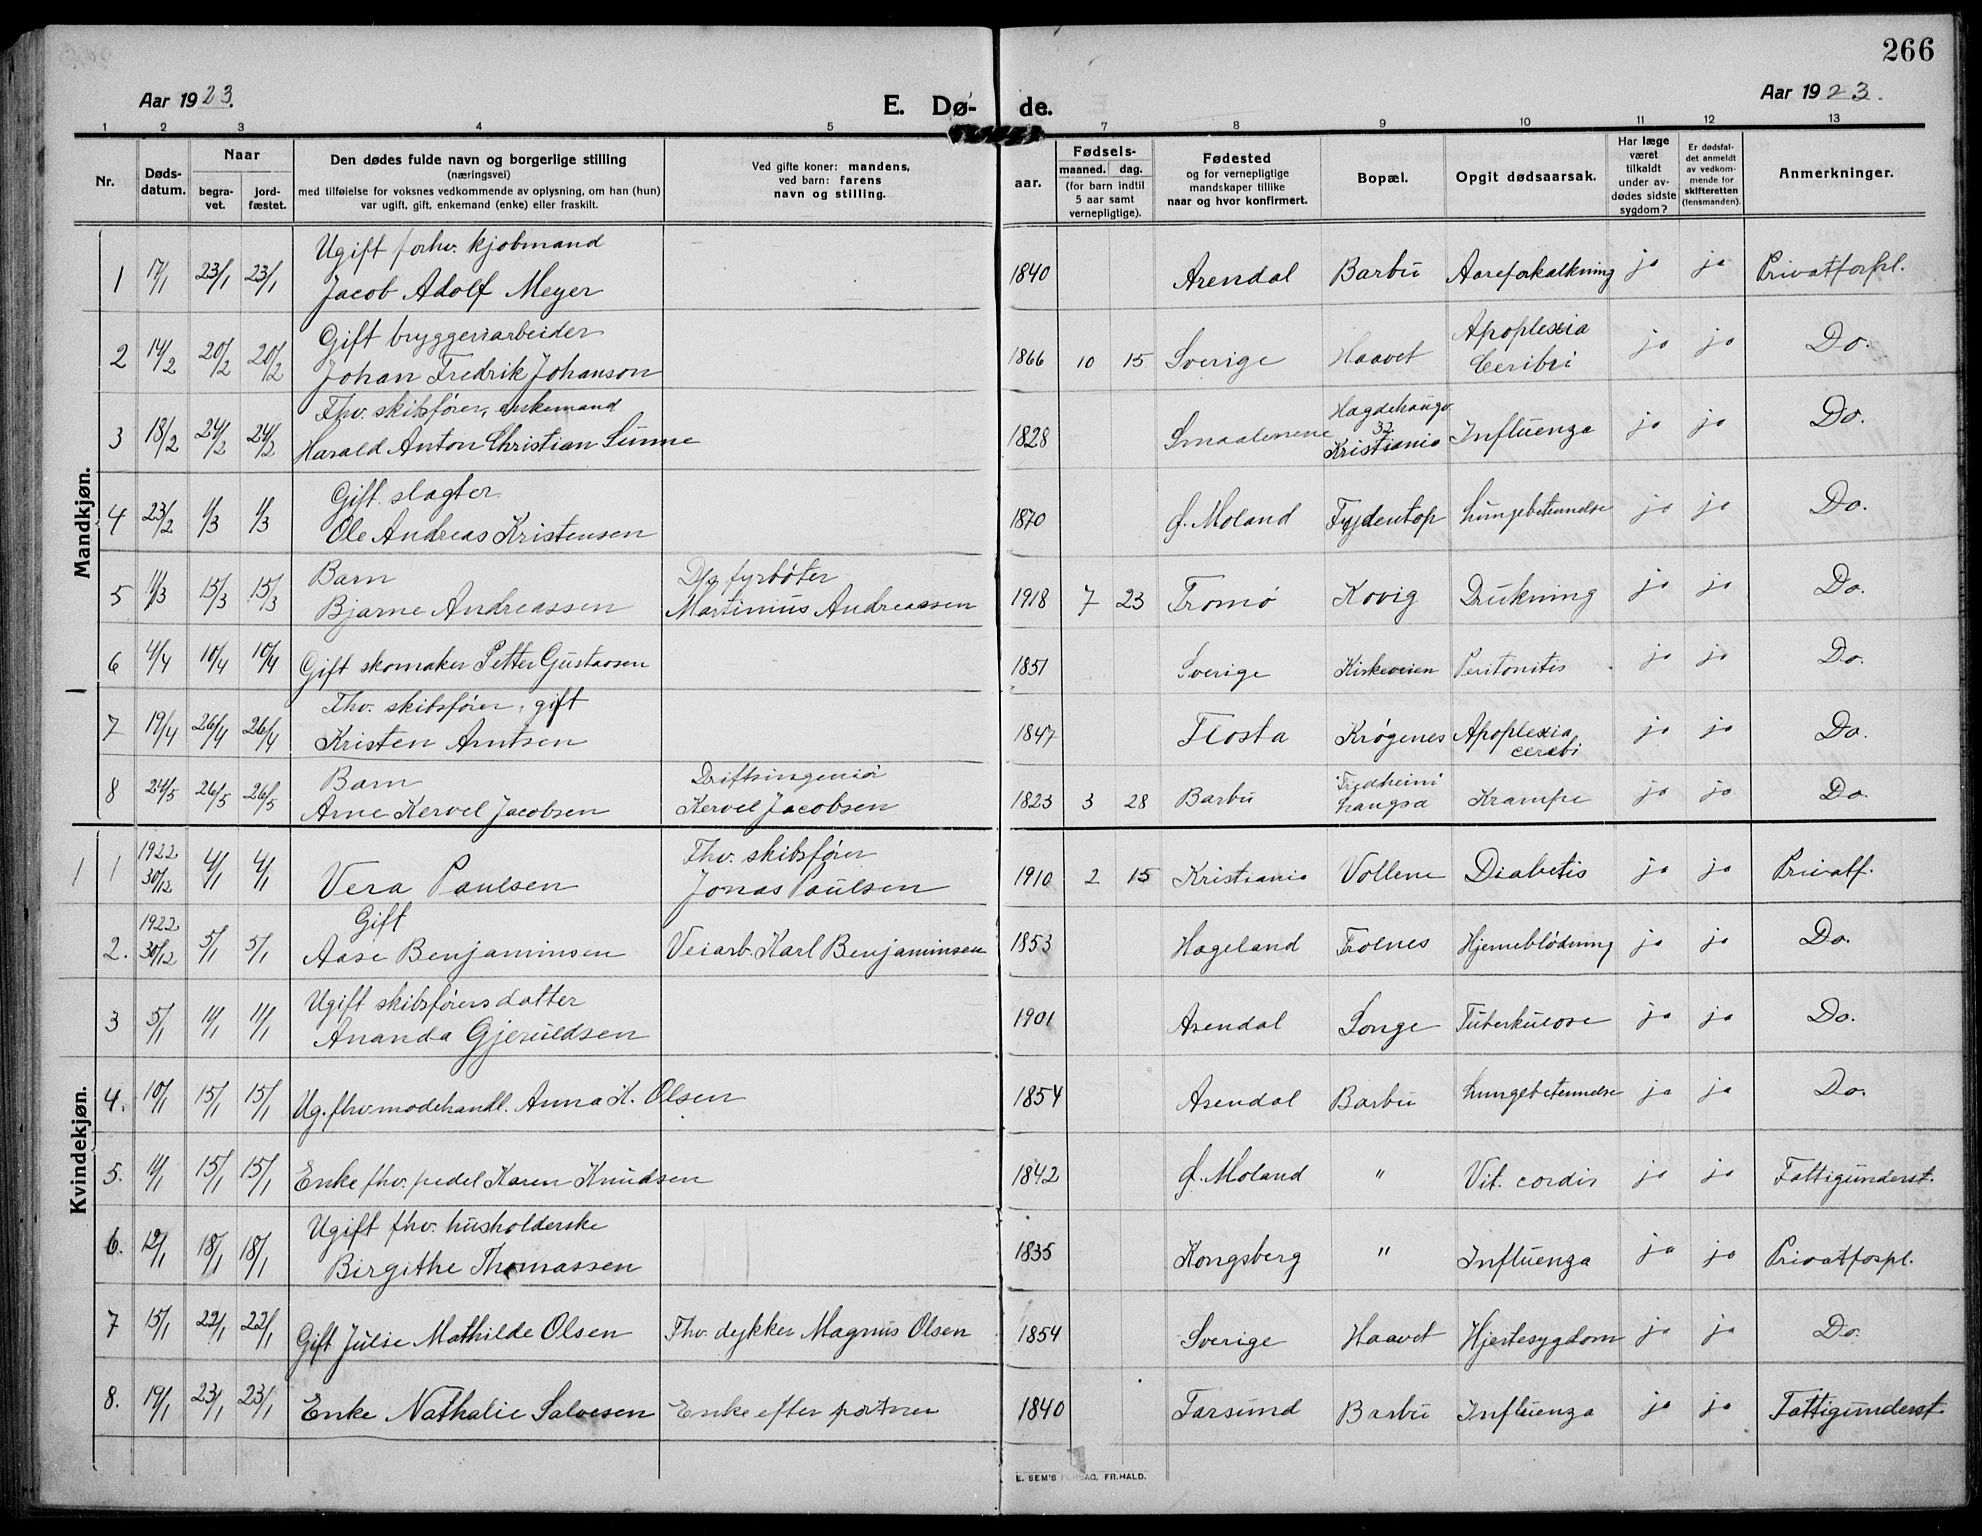 266
Aar 1923.
E. Dø-
de.
Aar 1923.
1 2 3 4 5 7 8 9 10 11 12 13
Nr.
Døds-
datum.
Naar
begra-
vet.
jord-
fæstet.
Den dødes fulde navn og borgerlige stilling
(næringsvei)
med tilføielse for voksnes vedkommende av oplysning, om han (hun)
var ugift, gift, enkemand (enke) eller fraskilt.
Ved gifte koner: mandens,
ved barn: farens
navn og stilling.
Fødsels-
aar.
maaned. dag.
(for barn indtil
5 aar samt
vernepligtige).
Fødested
og for vernepligtige
mandskaper tillike
naar og hvor konfirmert.
Bopæl.
Opgit dødsaarsak.
Har læge
været
tilkaldt
under av-
dødes sidste
sygdom?
Er dødsfal-
det anmeldt
av vedkom-
mende for
skifteretten
(lensmanden).
Anmerkninger.
Mandkjøn.
Ugift forhv. kjøbmand
1 17/1 23/1 23/1 Jacob Adolf Meyer 1840 Arendal Barbu Aareforkalkning ja ja Privatforpl.
Gift bryggeriarbeider Apoplexia
2 14/2 20/2 20/2 Johan Fredrik Johanson 1866 10 15 Sverige Haavet Ceribri ja ja Do.
Fhv. skibsfører, enkemand Hægdehaugv.
32
3 18/2 24/2 24/2 Harald Anton Christian Sunne 1828 Smaalenene Kristiania Influenza ja ja Do.
Gift slagter
4 23/2 1/3 1/3 Ole Andreas Kristensen 1870 Ø. Moland Fydentop Lungebetennelse ja ja Do.
Barn D/g fyrbøter
5 11/3 15/3 15/3 Bjarne Andreassen Martinius Andreassen 1918 7 23 Tromø Kovig Drukning ja ja Do.
6 4/4 10/4 10/4 Gift skomaker Petter Gustavsen 1851 Sverige Kirkeveien Peritonitis ja ja Do.
Fhv. skibsfører, gift
7 19/4 26/4 26/4 Kristen Arntsen 1847 Flosta Krøgenes Apoplexia cerebi ja ja Do.
Barn Driftsingeniør "Fredheim"
8 24/5 26/5 26/5 Arne Kervel Jacobsen Kervel Jacobsen 1823 3 28 Barbu Langsæ Krampe ja ja Do.
Kvindekjøn.
1922 Fhv. skibsfører
1 30/12 4/1 4/1 Vera Paulsen Jonas Paulsen 1910 2 15 Kristiania Vollene Diabetis ja ja Privatf.
1922 Gift
2. 30/12 5/1 5/1 Aase Benjaminsen Veiarb. Karl Benjaminsen 1853 Hægeland Trolnes Hjerneblødning ja ja Do.
Ugift skibsførersdatter
3 5/1 11/1 11/1 Ananda Gjeruldsen 1901 Arendal Longe Tuberkulose ja ja Do.
4. 10/1 15/1 15/1 Ug. fhv. modehandl. Anna K. Olsen 1854 Arendal Barbu Lungebetennelse ja ja Do.
5. 11/1 15/1 15/1 Enke fhv. pedel Karen Knudsen 1842 Ø. Moland " Vit. cordis ja ja Fattigunderst.
Ugift fhv. husholderske
6. 12/1 18/1 18/1 Birgithe Thomassen 1835 Kongsberg " Influenza ja ja Privatforpl.
7 15/1 22/1 22/1 Gift Julie Mathilde Olsen Fhv. dykker Magnus Olsen 1854 Sverige Haavet Hjertesygdom ja ja Do.
8. 19/1 23/1 23/1 Enke Nathalie Salvesen Enke efter portner 1840 Farsund Barbu Influenza ja ja Fattigunderst.
E. SEM'S FORLAG, FR.HALD.